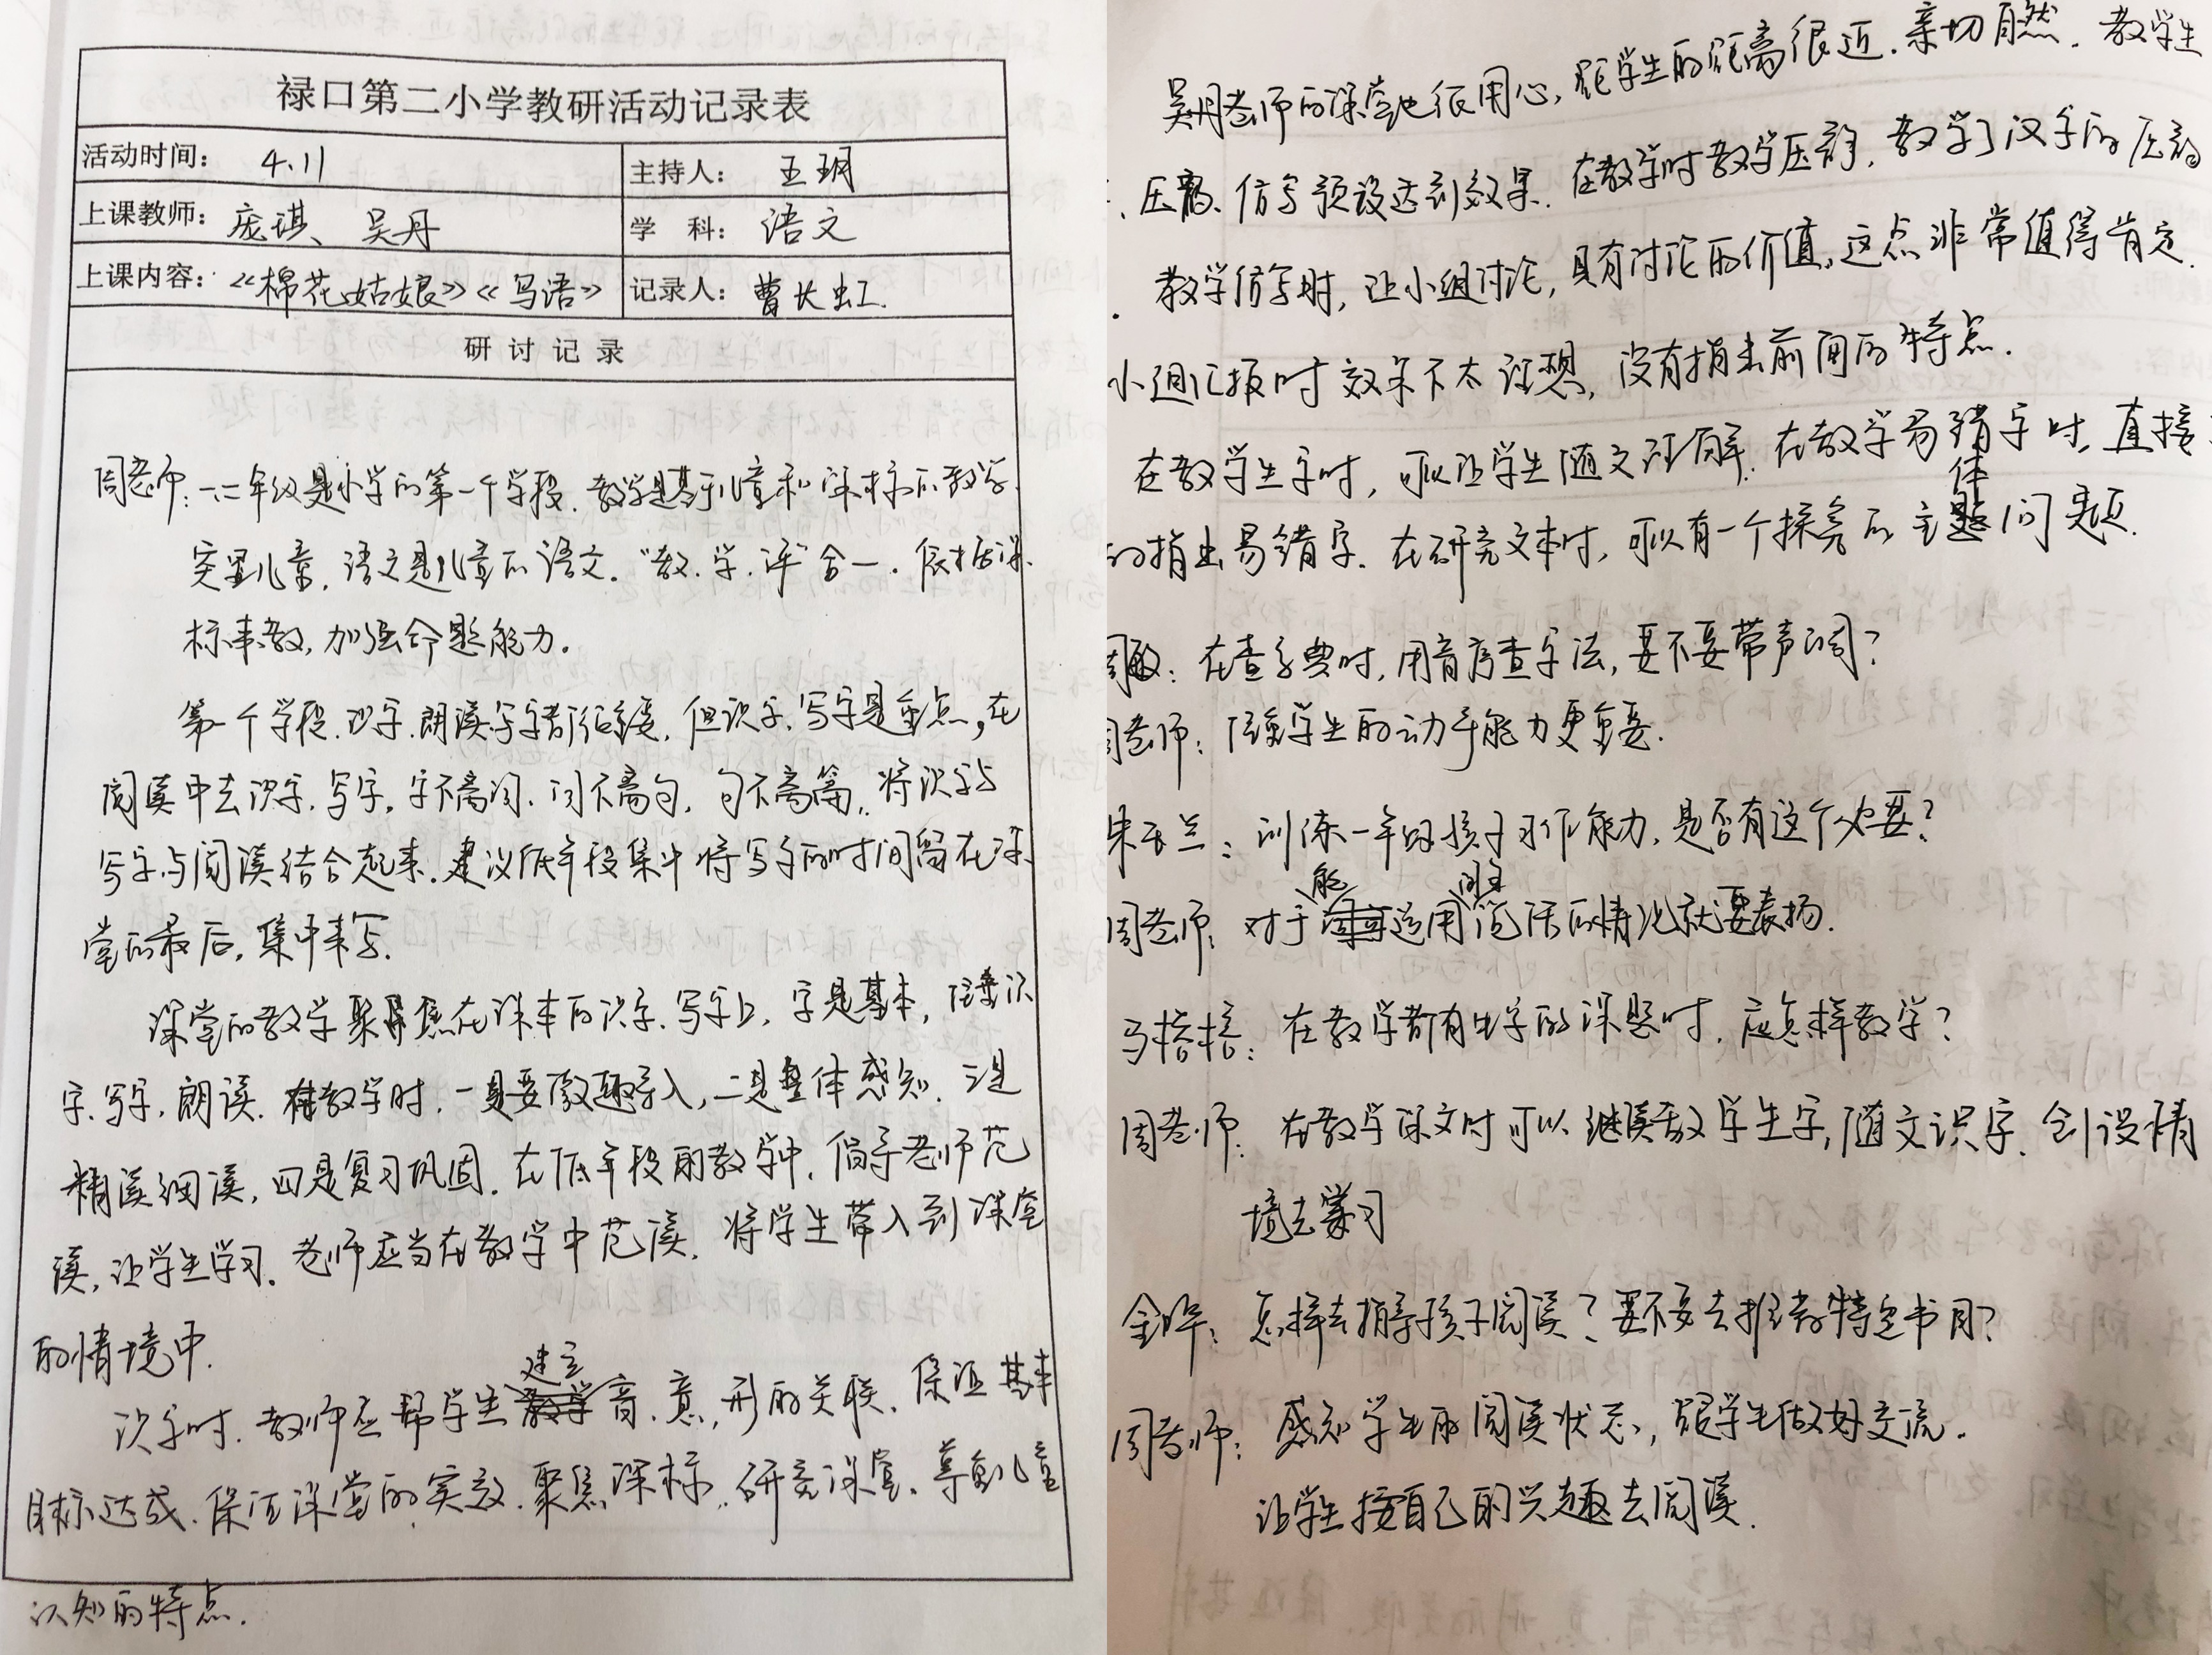 禄口第二小学教研活动记录表
活动时间： 4.11 主持人： 王玥
上课教师： 庞琪、吴丹 学 科： 语文
上课内容：《棉花姑娘》《写话》 记录人： 曹长虹.
研讨记录
周老师：一、二年级是小学的第一个学段.教学是基于儿童和课标的教学.
突显儿童,语文是儿童的语文."教.学.评"合一.依据课
标来教,加强命题能力。
第一个学段.识字.朗读写字都很重要,但识字.写字是重点,在
阅读中去识字.写字,字不离词.词不离句,句不离篇.将识字与
写字与阅读结合起来.建议低年段集中将写字的时间留在课
堂的最后,集中来写.
课堂的教学聚焦在课本的识字.写字上,字是基本,注重识
字.写字,朗读.在教学时.一是要激趣导入,二是整体感知.三是
精读细读,四是复习巩固.在低年段的教学中.倡导老师范
读,让学生学习.老师应当在教学中范读.将学生带入到课堂
的情境中.
识字时.教师应帮学生建立音.意,形的关联.保证基本
目标达成.保证课堂的实效.聚焦课标.研究课堂.尊重儿童
认知的特点.
吴丹老师的课堂也很用心,跟学生的距离很近.亲切自然.教学生
、压韵、仿写预设达到效果.在教学时教学压韵.教学了汉字的压韵
.教学仿写时,让小组讨论,具有讨论的价值,这点非常值得肯定.
小组汇报时效果不太理想,没有指出前面的特点.
在教学生字时,可以让学生随文理解.在教学易错字时,直接
的指出易错字.在研究文本时,可以有一个探究的主体问题.
周敏：在查字典时,用音序查字法,要不要带声调?
周老师：注重学生的动手能力更重要.
朱玉兰：训练一年级孩子习作能力,是否有这个必要?
周老师：对于能运用的情况就要表扬.
马榕榕：在教学都有生字的课题时,应怎样教学?
周老师：在教学课文时可以继续教学生字,随文识字.创设情
境去学习
金晔：怎样去指导孩子阅读?要不要去推荐特定书目?
周老师：感知学生的阅读状态,跟学生做好交流.
让学生按自己的兴趣去阅读.